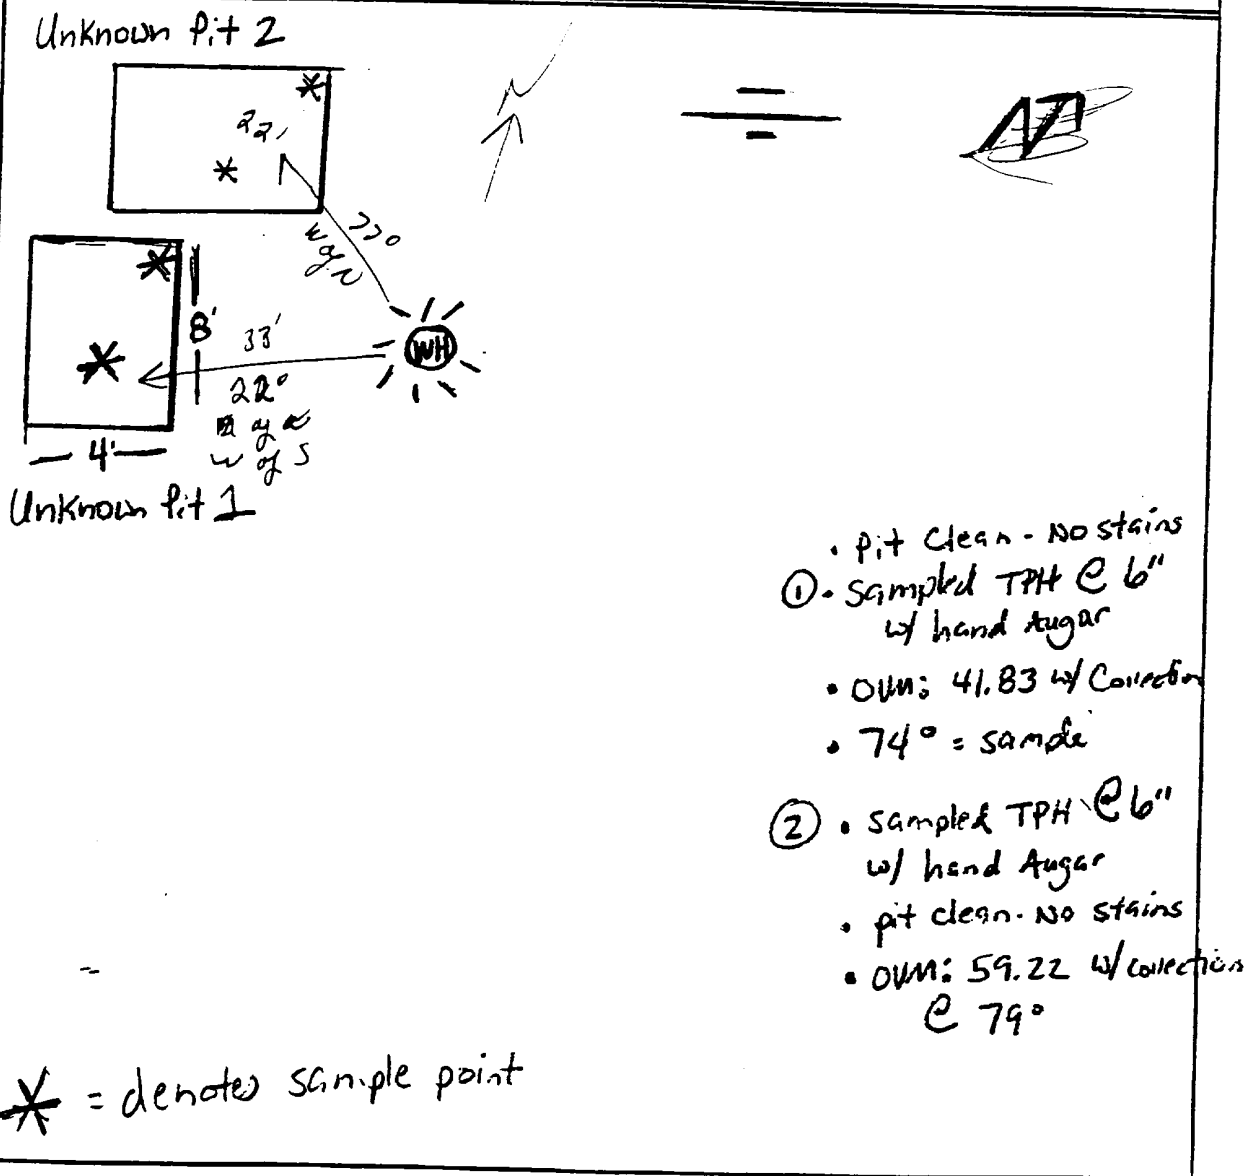 Unknown Pit 2
N
22'
77°
W of N
8'
33'
WH
22°
W of S
4'
Unknown Pit 1
• Pit Clean - No stains
① • Sampled TPH @ 6"
w/ hand Augar
• OVM: 41.83 w/ Correction
• 74° = sample
② • Sampled TPH @ 6"
w/ hand Augar
• pit clean - No stains
• OVM: 59.22 w/ correction
@ 79°
* = denotes sample point